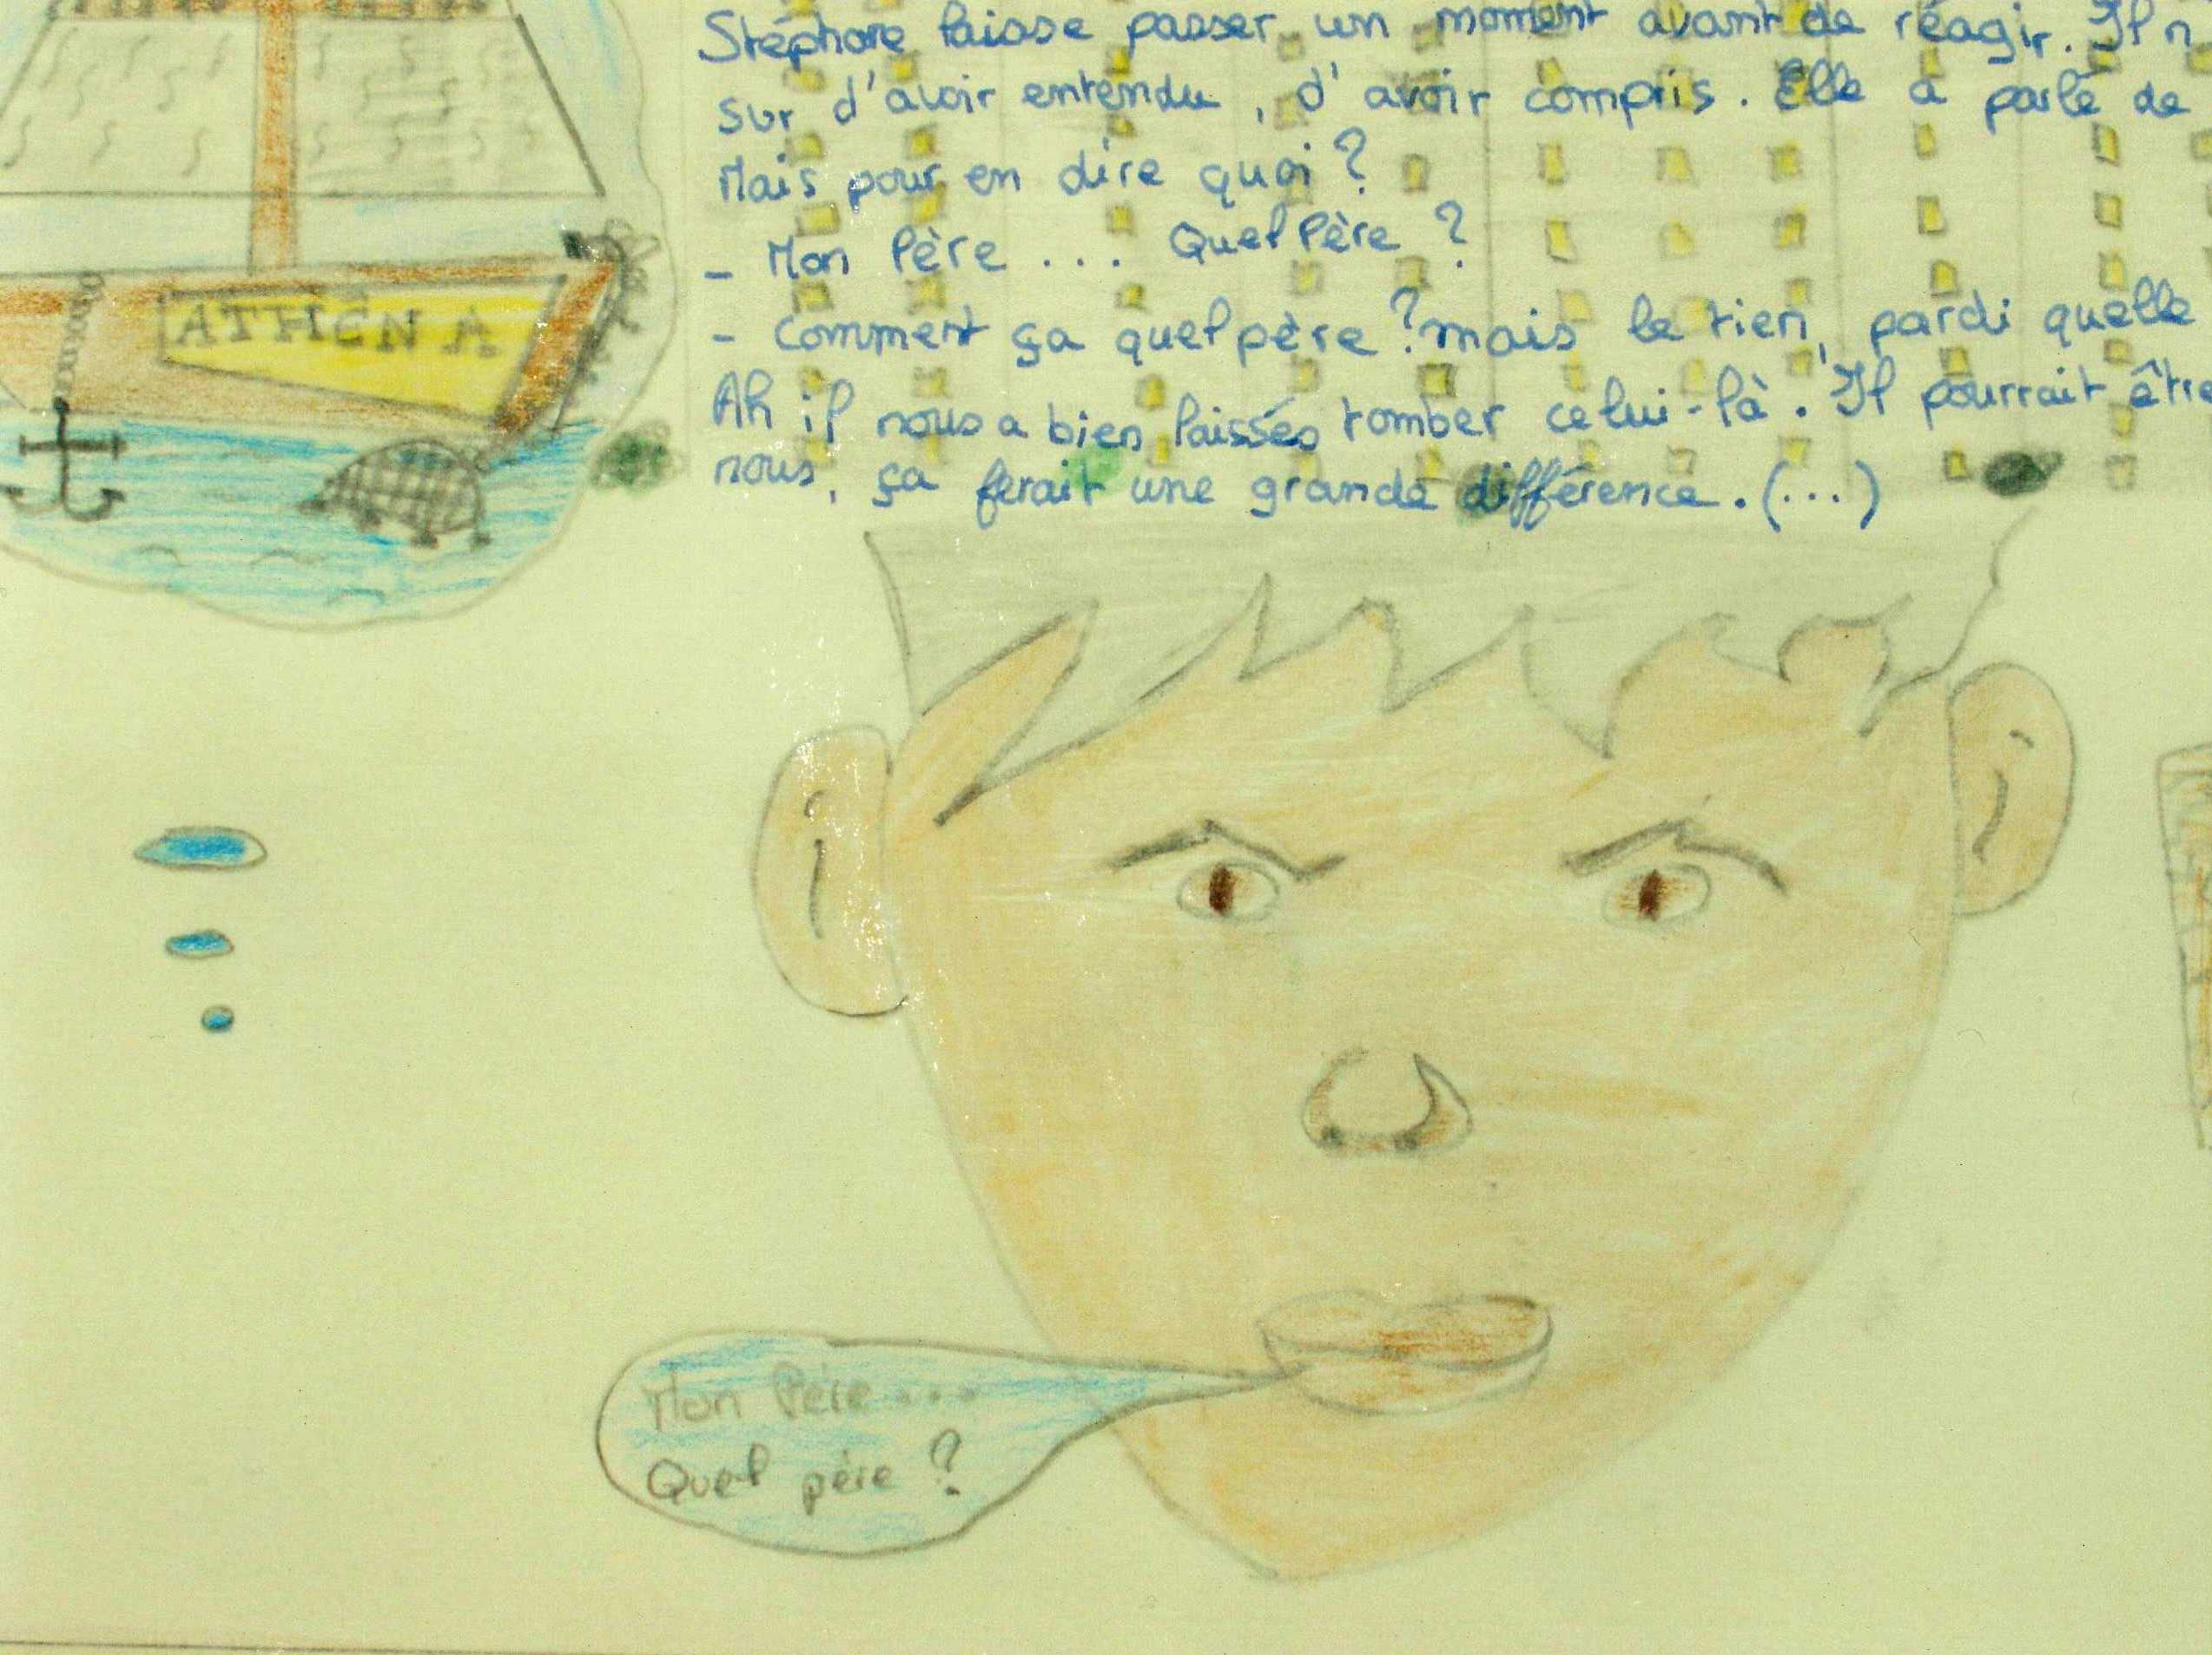 Stéphane laisse passer un moment avant de réagir. Il n
sur d'avoir entendu, d'avoir compris. Elle a parlé de
Mais pour en dire quoi ?
- Mon Père ... Quel Père ?
- Comment ça quel père ? mais le tien, pardi quelle
Ah il nous a bien laissés tomber celui-là. Il pourrait être
nous, ça ferait une grande différence. (...)
ATHÉNA
Mon Père ...
Quel père ?